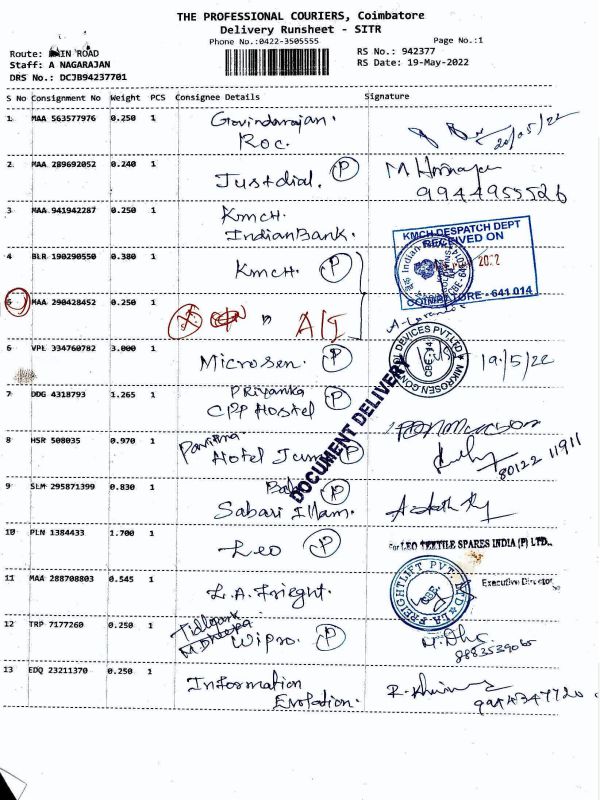 THE PROFESSIONAL COURIERS, Coimbatore
Delivery Runsheet - SITR
Phone No.:0422-3505555 Page No.:1
Route: MAIN ROAD RS No.: 942377
Staff: A NAGARAJAN RS Date: 19-May-2022
DRS No.: DCJB94237701
S No Consignment No Weight PCS Consignee Details Signature
1 MAA 563577976 0.250 1 Govindarajan. 20/05/22
Roc.
2 MAA 289692052 0.240 1 Justdial. P M
9944955526
3 MAA 941942287 0.250 1 KMCH.
IndianBank.
KMCH DESPATCH DEPT
RECEIVED ON
2022
COIMBATORE - 641 014
4 BLR 190290550 0.380 1 KMCH. P
5 MAA 290428452 0.250 1 A/I
6 VPL 334760782 3.000 1 Microsen. P 19/5/22
MIKROSEN CONTROL DEVICES PVT LTD
CBE-14
7 DDG 4318793 1.265 1 Priyanka
CPP Hostel P
DOCUMENT DELIVERY
8 HSR 508035 0.970 1 Pavithra
Hotel P 80122 11911
9 SLM 295871399 0.830 1 P
Sabari Illam.
10 PLN 1384433 1.700 1 Leo P
For LEO TEXTILE SPARES INDIA (P) LTD.,
Executive Director
11 MAA 288708803 0.545 1 L.A. Frieght.
LA FREIGHTLIFT PVT
CBE
12 TRP 7177260 0.250 1 Tidlepark
Wipro. P
13 EDQ 23211370 0.250 1 Information
Evolation. R.
9944347720